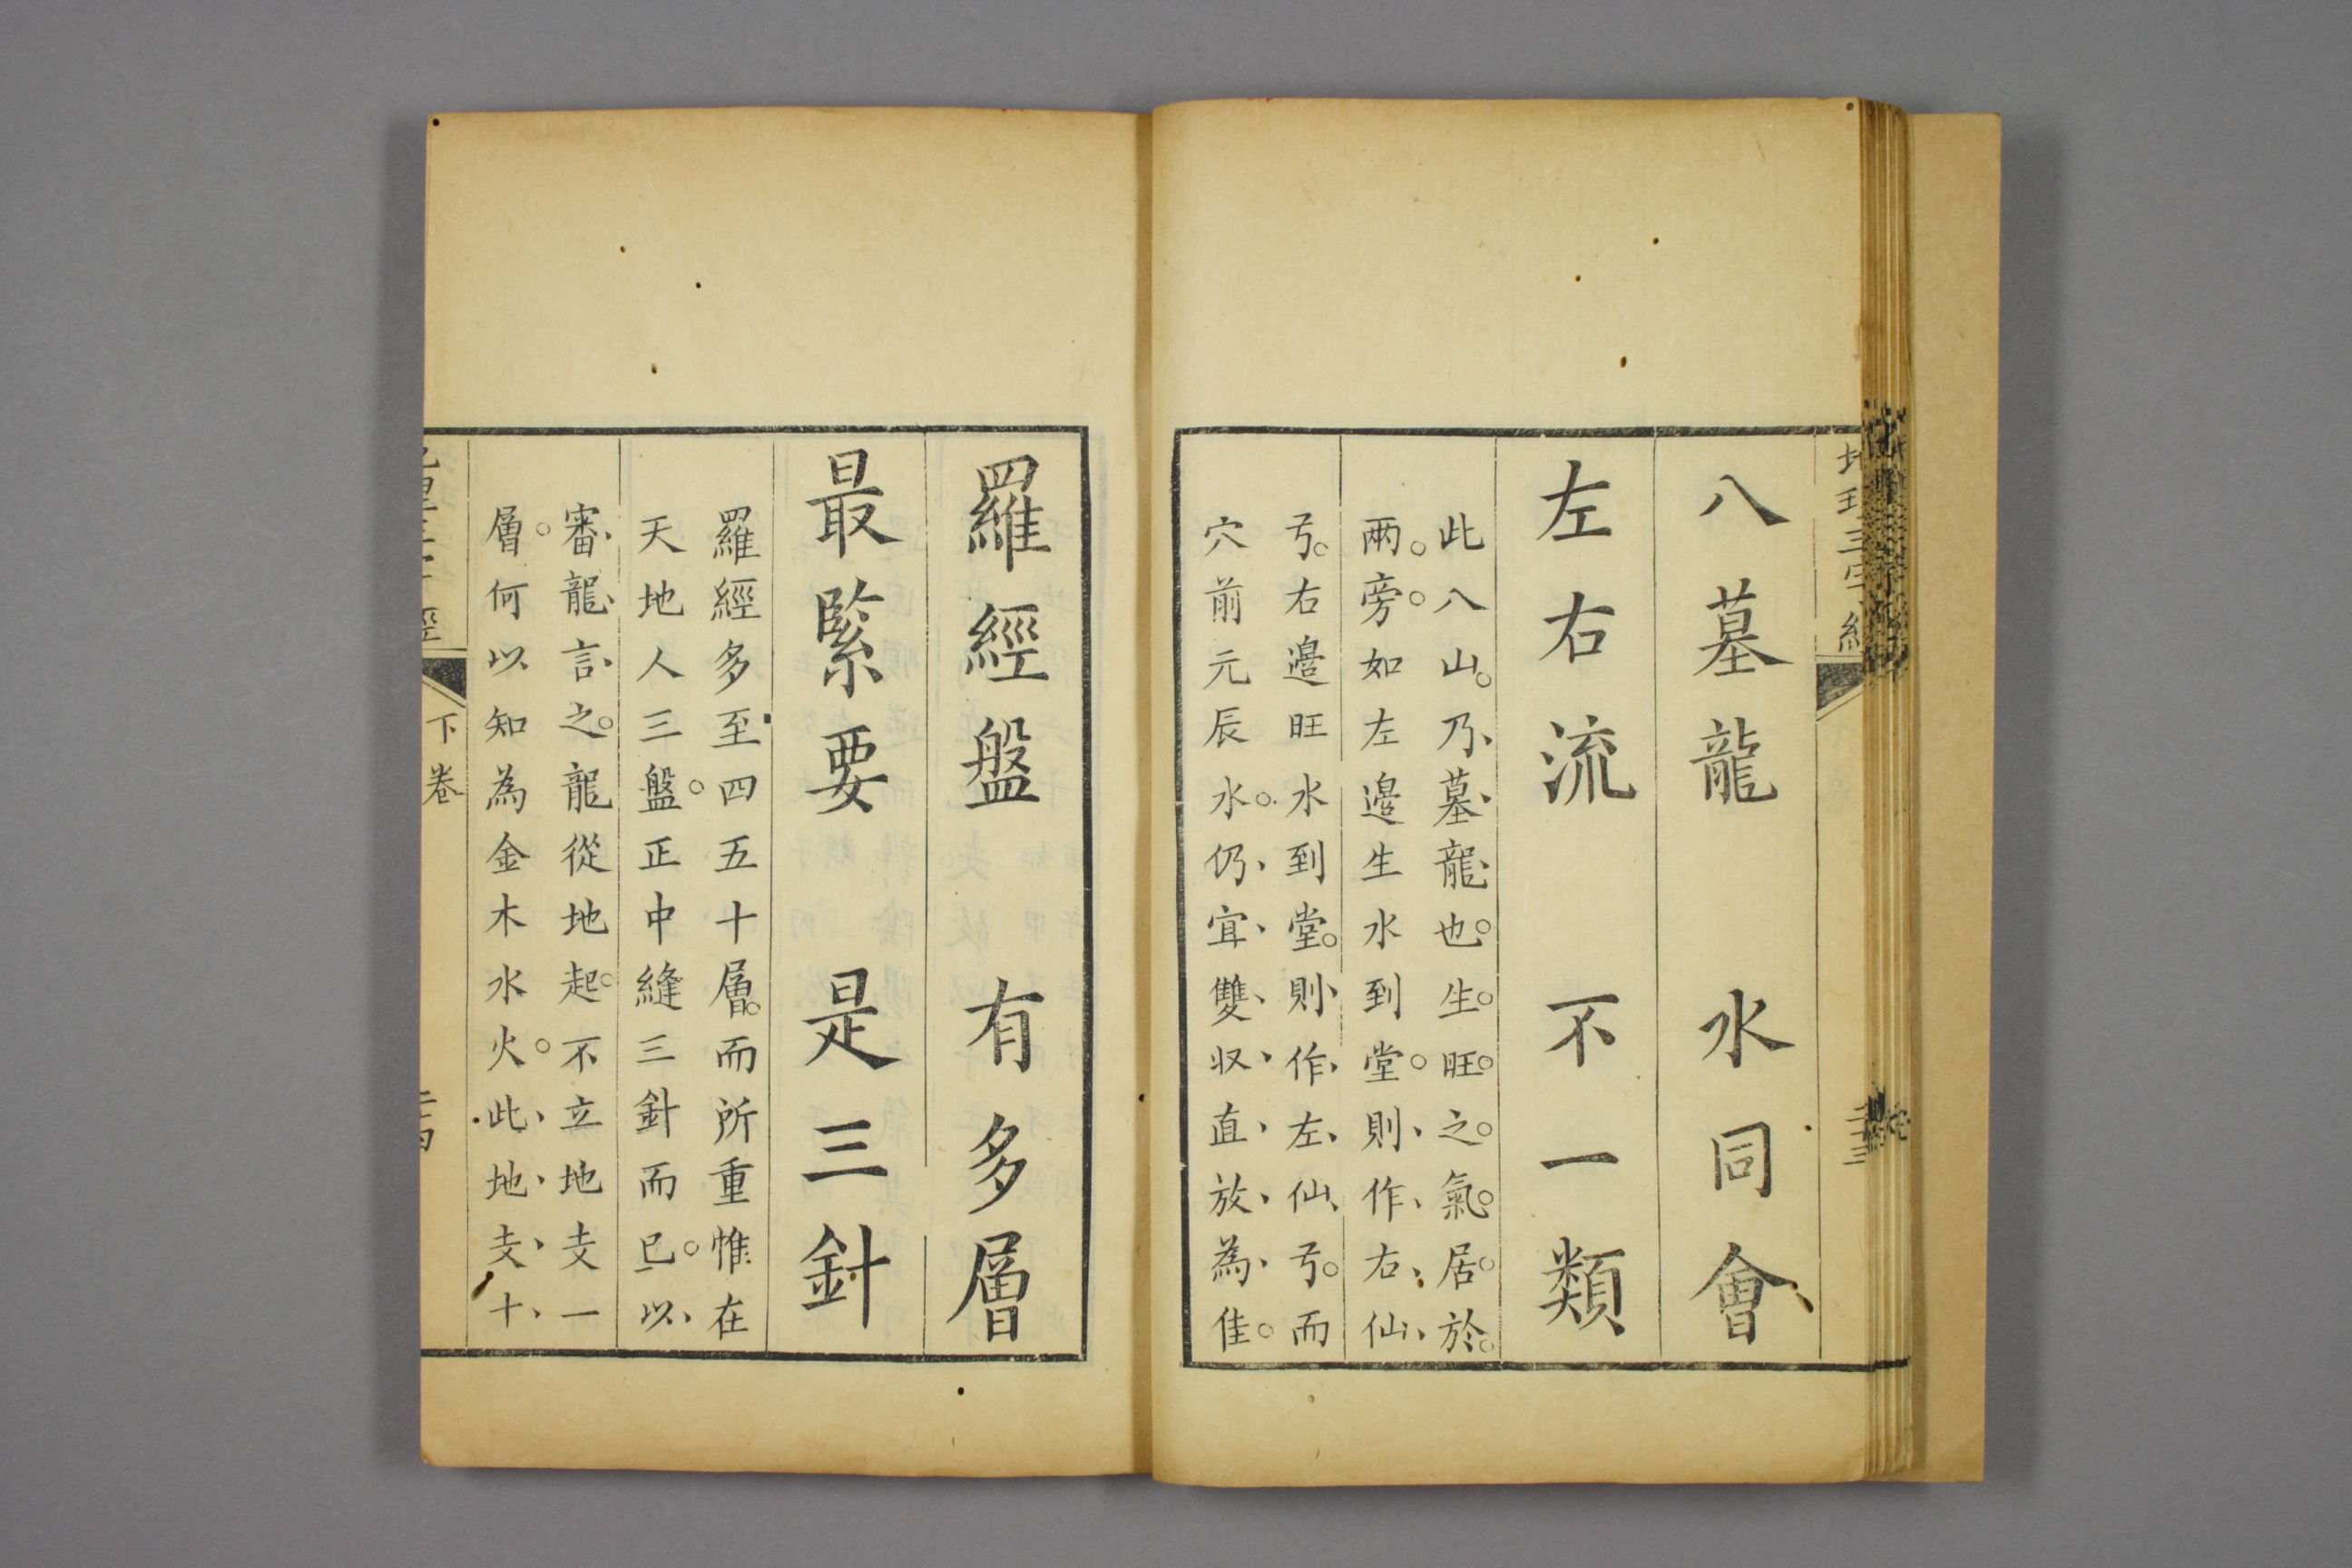 八墓龍 水同會
左右流 不一類
此八山。乃墓龍也。生旺之氣。居於
兩旁。如左邉生水到堂。則作右仙
弓。右邉旺水到堂。則作左仙弓。而
穴前元辰水。仍宜雙収直放為佳。
羅經盤 有多層
最緊要 是三針
羅經多至四五十層。而所重惟在
天地人三盤。正中縫三針而已。以
審龍言之。龍從地起。不立地支一
層。何以知為金木水火。此地支十
下卷